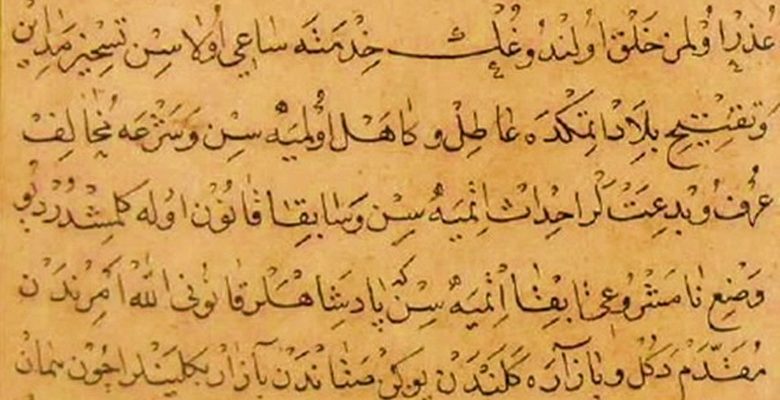 عُذِرٍ اوُلمز خَلْقْ اوُلندُوغُڭ خِدمتَه سَاعِي أُولاسِنْ تَسْخِيرِ مَدَايِن
وَتَفْتِيحِ بِلَادْ اِتمِكْدَه عَاطِلْ و كَاهَلْ اوُلميَه سِنْ وَ شَرْعَه مُخَالِفْ
عُرُفْ وُ بِدْعِتْ لَر اِحْدِاثْ اِتْميَه سِنْ وَسَابِقَا قَانُوُنْ اوُلَه كَلمِشْدُرْ دِيُو
وَضْعِ نَا مَشْرُوعِي اِبْقَا اِتْميَه سِنْ كِه پَادِشَاهْلَر قَانُونِي اَللّٰه اَمْرِندَنْ
مُقَدَّمْ دَكُلْ وَ بَازَارَه كَلَندَنْ يوكِنْ صَتَاندَنْ بَازَارْ بكلينلراچُونْ